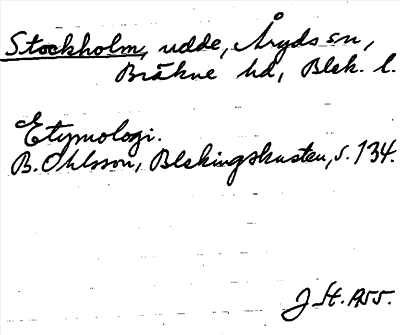 Stockholm, udde, Åryds sn,
Bräkne hd, Blek. l.
Etymologi.
B. Ohlsson, Blekingskusten, s. 134.
J. St. 1955.